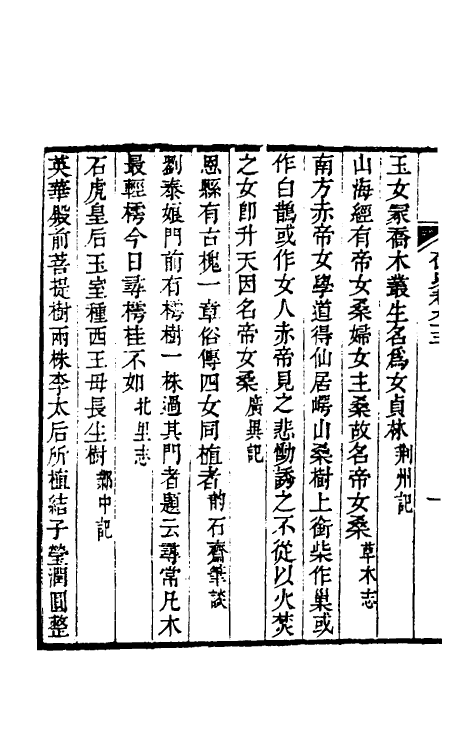 玉女冢喬木叢生名爲女貞林荆州記
山海經有帝女桑婦女主桑故名帝女桑草木志
南方赤帝女學道得仙居崿山桑樹上銜柴作巢或
作白鵲或作女人赤帝見之悲慟誘之不從以火焚
之女卽升天因名帝女桑廣異記
恩縣有古槐一章俗傳四女同植者的石齋筆談
劉泰娘門前有樗樹一株過其門者題云尋常凡木
最輕樗今日尋樗桂不如北里志
石虎皇后玉室種西王母長生樹鄴中記
英華殿前菩提樹兩株李太后所植結子瑩潤圓整